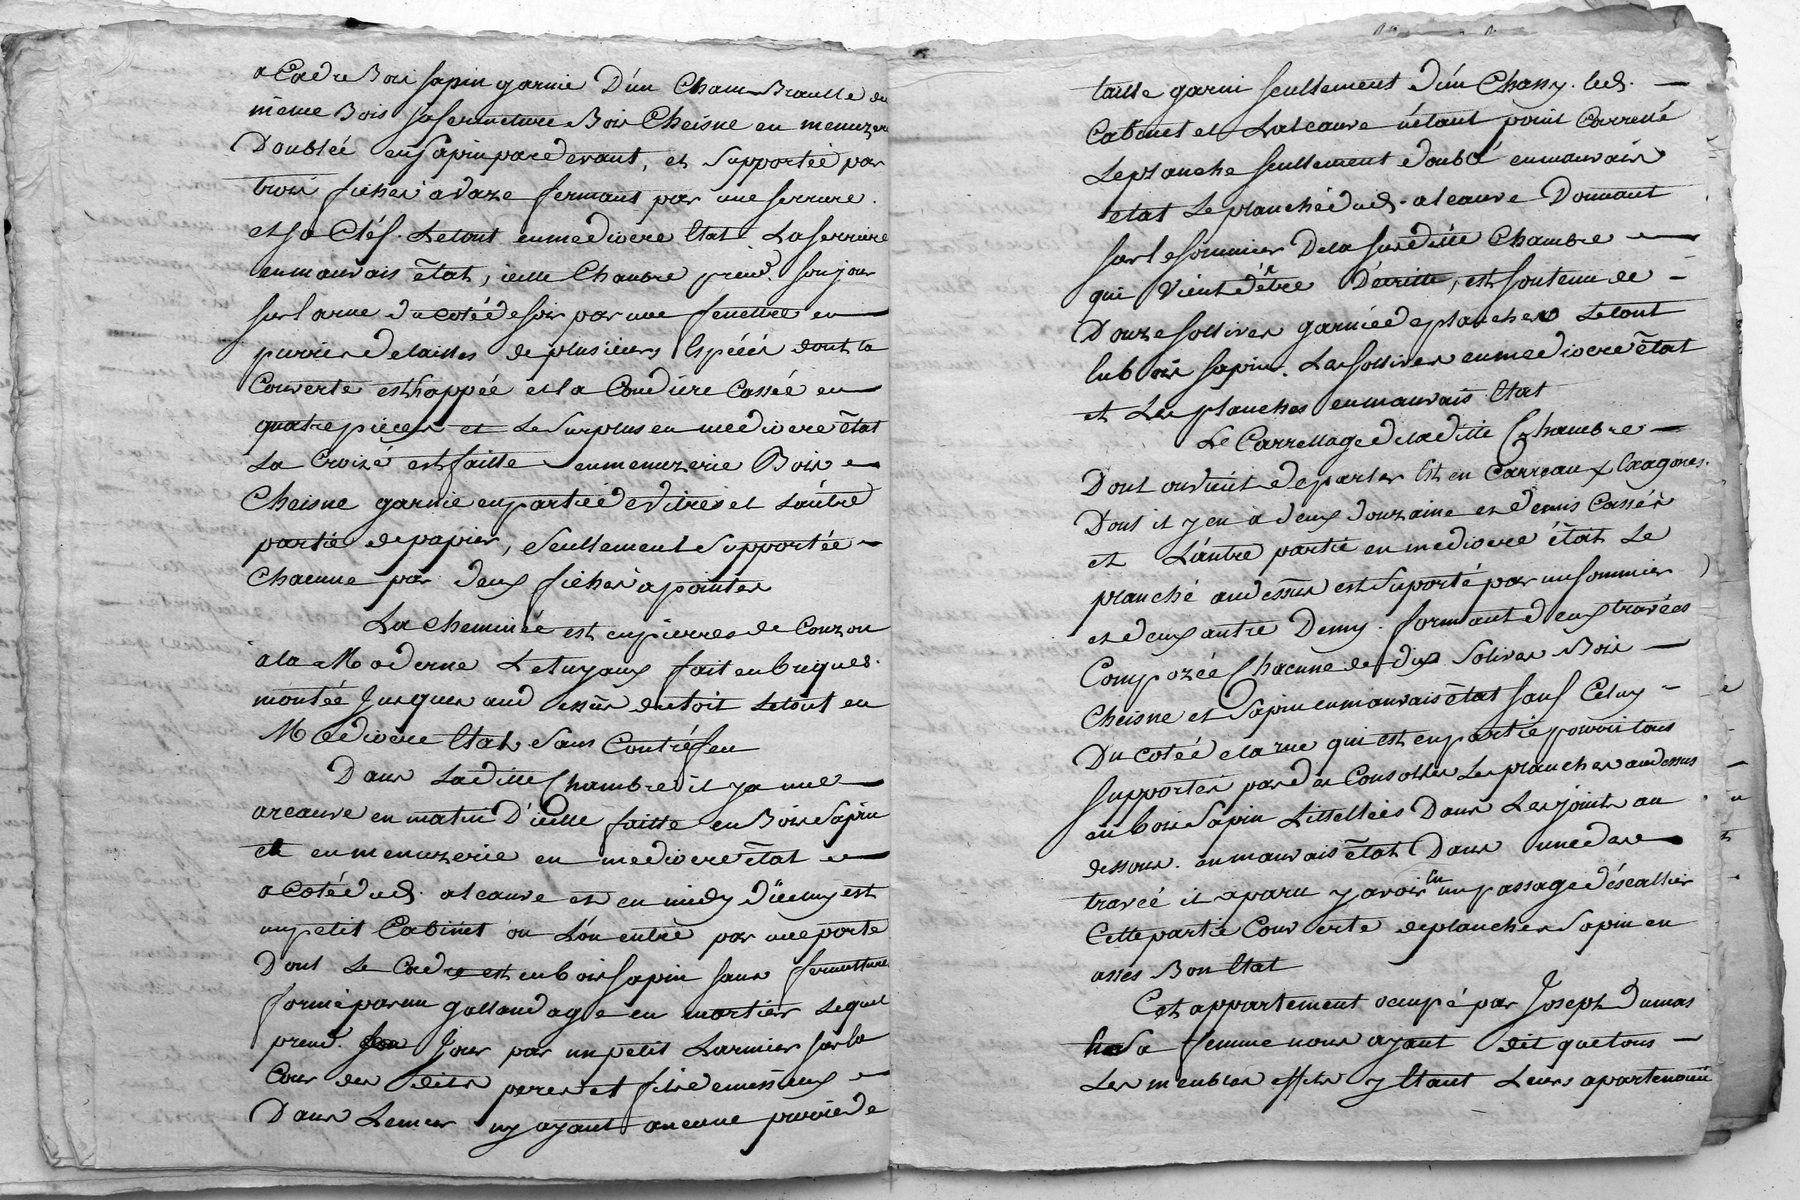 a Cadre Bois sapin garnie D'un Cham Branlle du
même Bois sa fermeture Bois Cheisne en menuzerie
Doublée en Sapin par devant, et Supportée par
trois fiches a vaze fermant par une serrure
et sa Cléf. Le tout en mediocre Etat. La serrure
en mauvais ëtat, icelle Chambre prend son jour
sur la rue du coté de soir par une fenettre en
pierre de tailles de plusieurs Espéée dont la
Couverte est happée et la Coudiere Cassée en
quatre pieces et Le Surplus en mediocre ëtat
La Croizé est faitte en menuzerie Bois
Cheisne garnie en partie de vitres et L'autre
partie de papier, seullement Supportée
Chacune par deux fiches a pointes
La cheminée est en pierres de Couzon
a la Moderne Le tuyaux fait en briques
montée Jusques au dessus du toit Le tout en
Mediocre Etat Sans Contréfeu
Dans Laditte Chambre il y a une
arcauve en matin D'icelle faitte en Bois Sapin
et en menuzerie en mediocre ëtat
a Coté dud. alcauve et en midy D'icelluy est
un petit Cabinet ou L'on entre par une porte
Dont Le Cadre est en bois sapin sans fermetture
formé par un gallandage en mortier Lequel
prend Jour par un petit Larmier sur la
Cour des dits peres et fils demessieux
Dans Le mur n'y ayant aucune pierre de
taille garni seullement d'un Chassy. led.
Cabinet et L'alcauve n'étant point Carrellé
Le planche seullement doublé en mauvais
etat Le planché dud. alcauve Donnant
sur le sommier De la susditte Chambre
qui vient d'être Décritte, est soutenu de
Douze sollives garnie de planches Le tout
En bois sapin. Les sollives en mediocre ëtat
et Les planches en mauvais Etat
Le Carrellage de laditte Chambre
Dont on vient de parler Est en Carreaux Exagones
Dont il y en à deux douzaine et demis Cassés
et L'autre partie en mediocre état Le
planché au dessus est Suporté par un sommier
et deux autre Demy. formant deux travées
Composée Chacune de dix Solives Bois
Cheisne et Sapin en mauvais ëtat sauf Celuy
Du coté de la rue qui est en partie pourri tous
supportés par des Consolles Les planches au dessus
en bois Sapin Littellées Dans Les joints au
dessous. en mauvais ëtat Dans une des
travée il a paru y avoir Eu un passage d'escallier
Cette partie Couverte de planches Sapin en
assés Bon Etat
Cet appartement ocupé par Joseph Dumas
Sa femme nous ayant dit que tous
Les meubles effets y Etant Leurs apartenoit